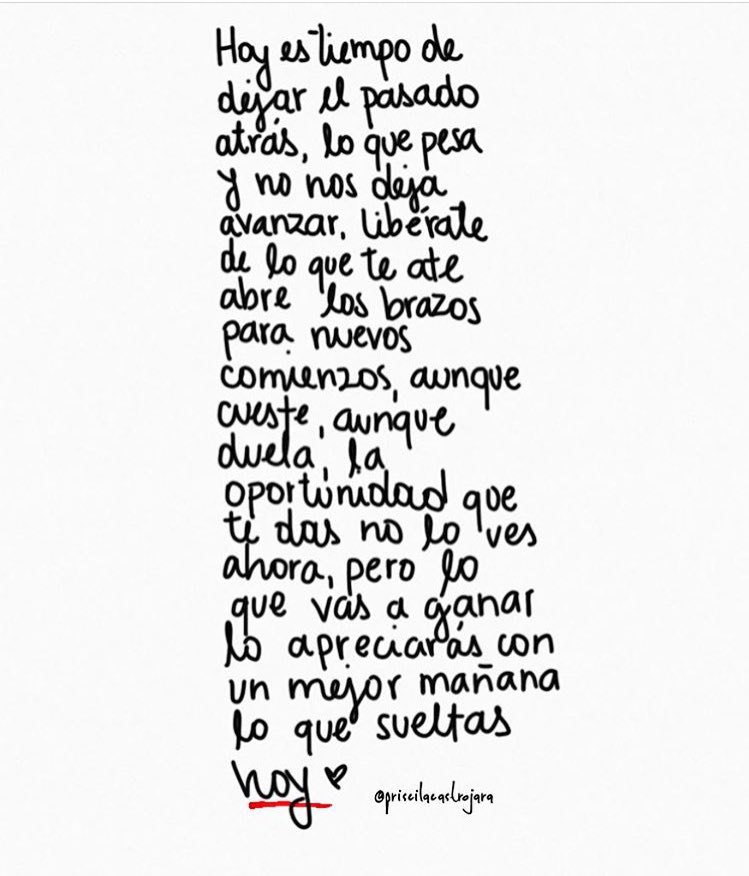 Hoy es tiempo de
dejar el pasado
atrás, lo que pesa
y no nos deja
avanzar, libérate
de lo que te ate
abre los brazos
para nuevos
comienzos, aunque
cueste, aunque
duela, la
oportunidad que
te das no lo ves
ahora, pero lo
que vas a ganar
lo apreciarás con
un mejor mañana
lo que sueltas
hoy
@priscilacastrojara